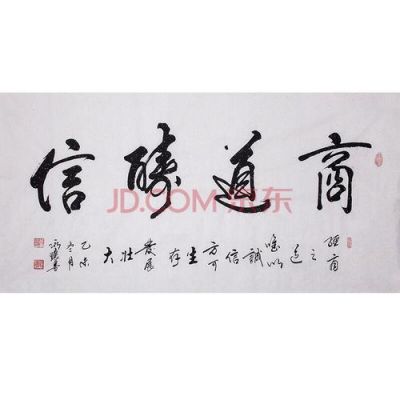 商道酬信
經商之道唯以誠信方可生存發展壯大
乙未冬月
JD.COM 京东